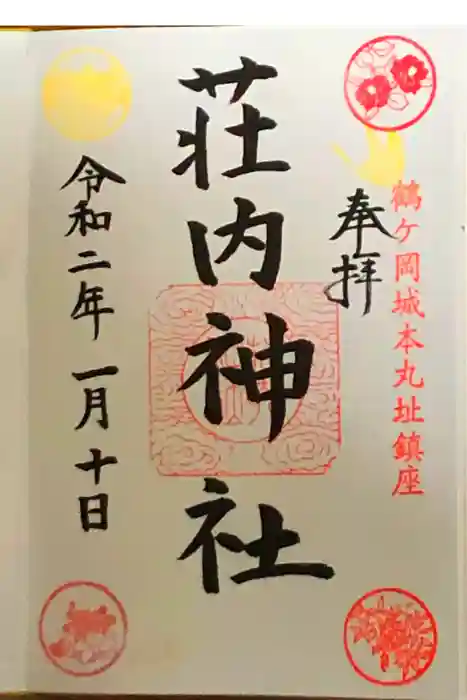 鶴ヶ岡城本丸址鎮座
奉拝
荘内神社
令和二年一月十日